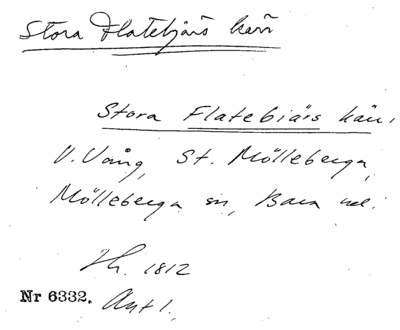 Stora Flatebjärs kärr
Stora Flatebiärs kär,
V. Vång, St. Mölleberga,
Mölleberga sn, Bara hd.
Sk. 1812
Nr 6332. Akt 1.